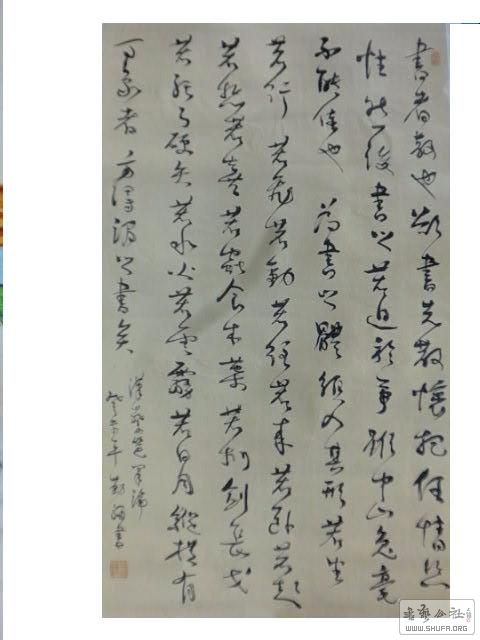 書者散也欲書先散懷抱任情恣
性然後書之若迫於事雖中山兔毫
不能佳也為書之體須入其形若坐
若行若飛若動若往若來若臥若起
若愁若喜若蟲食木葉若利劍長戈
若強弓硬矢若水火若雲霧若日月縱橫有
可象者方得謂之書矣
漢蔡邕筆論
年書
书艺公社
WWW.SHUFA.ORG